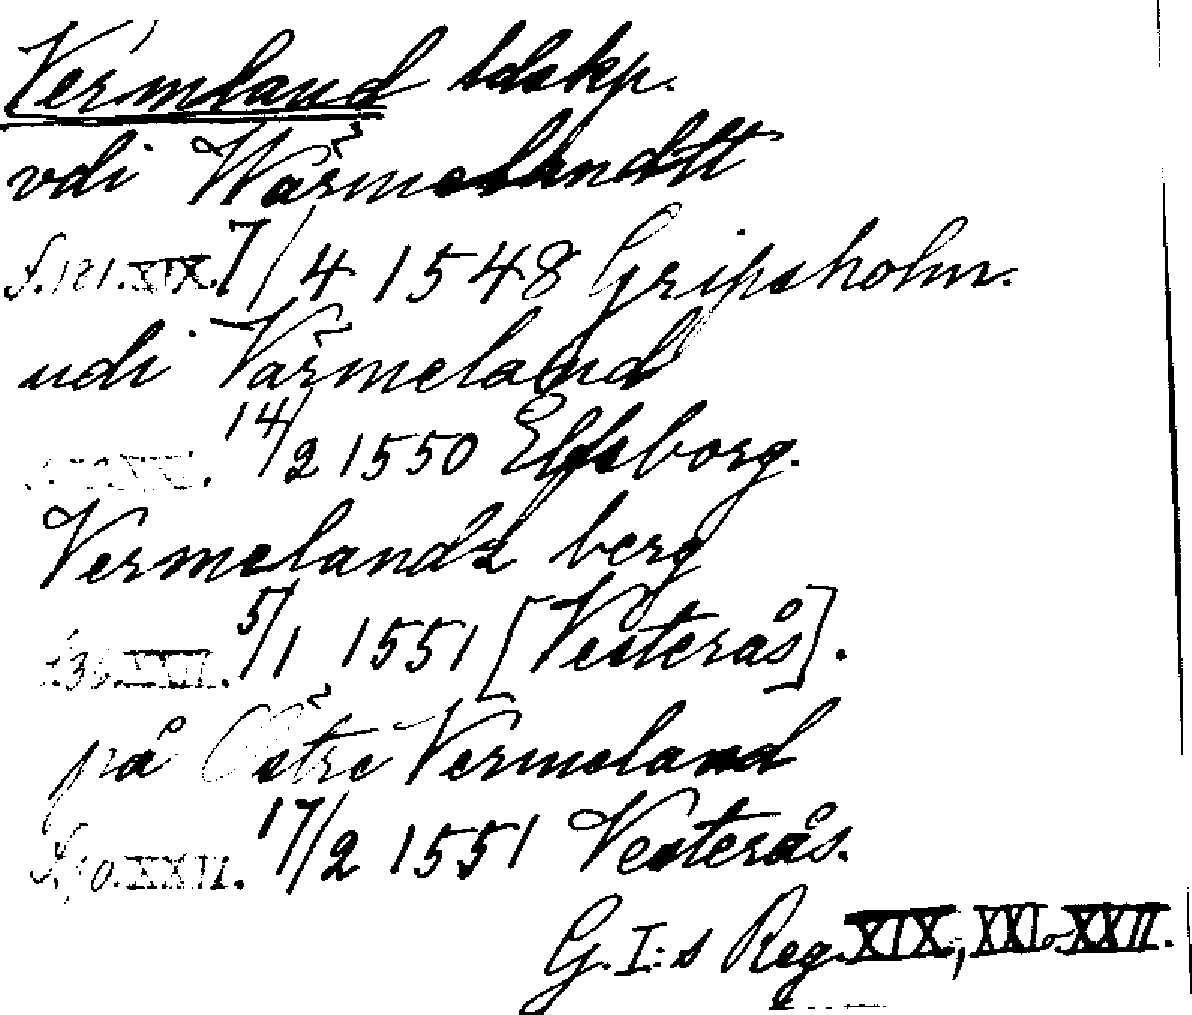 Värmland ldskp.
vdi Wärmelandtt
S. 181. XIX. 7/4 1548 Gripsholm.
udi Värmeland
14/2 1550 Elfsborg.
Vermelandz berg
XXII. 5/1 1551 [Vesterås].
på Östre Vermeland
XXII. 17/2 1551 Vesterås.
G. I:s Reg. XIX, XXI o XXII.